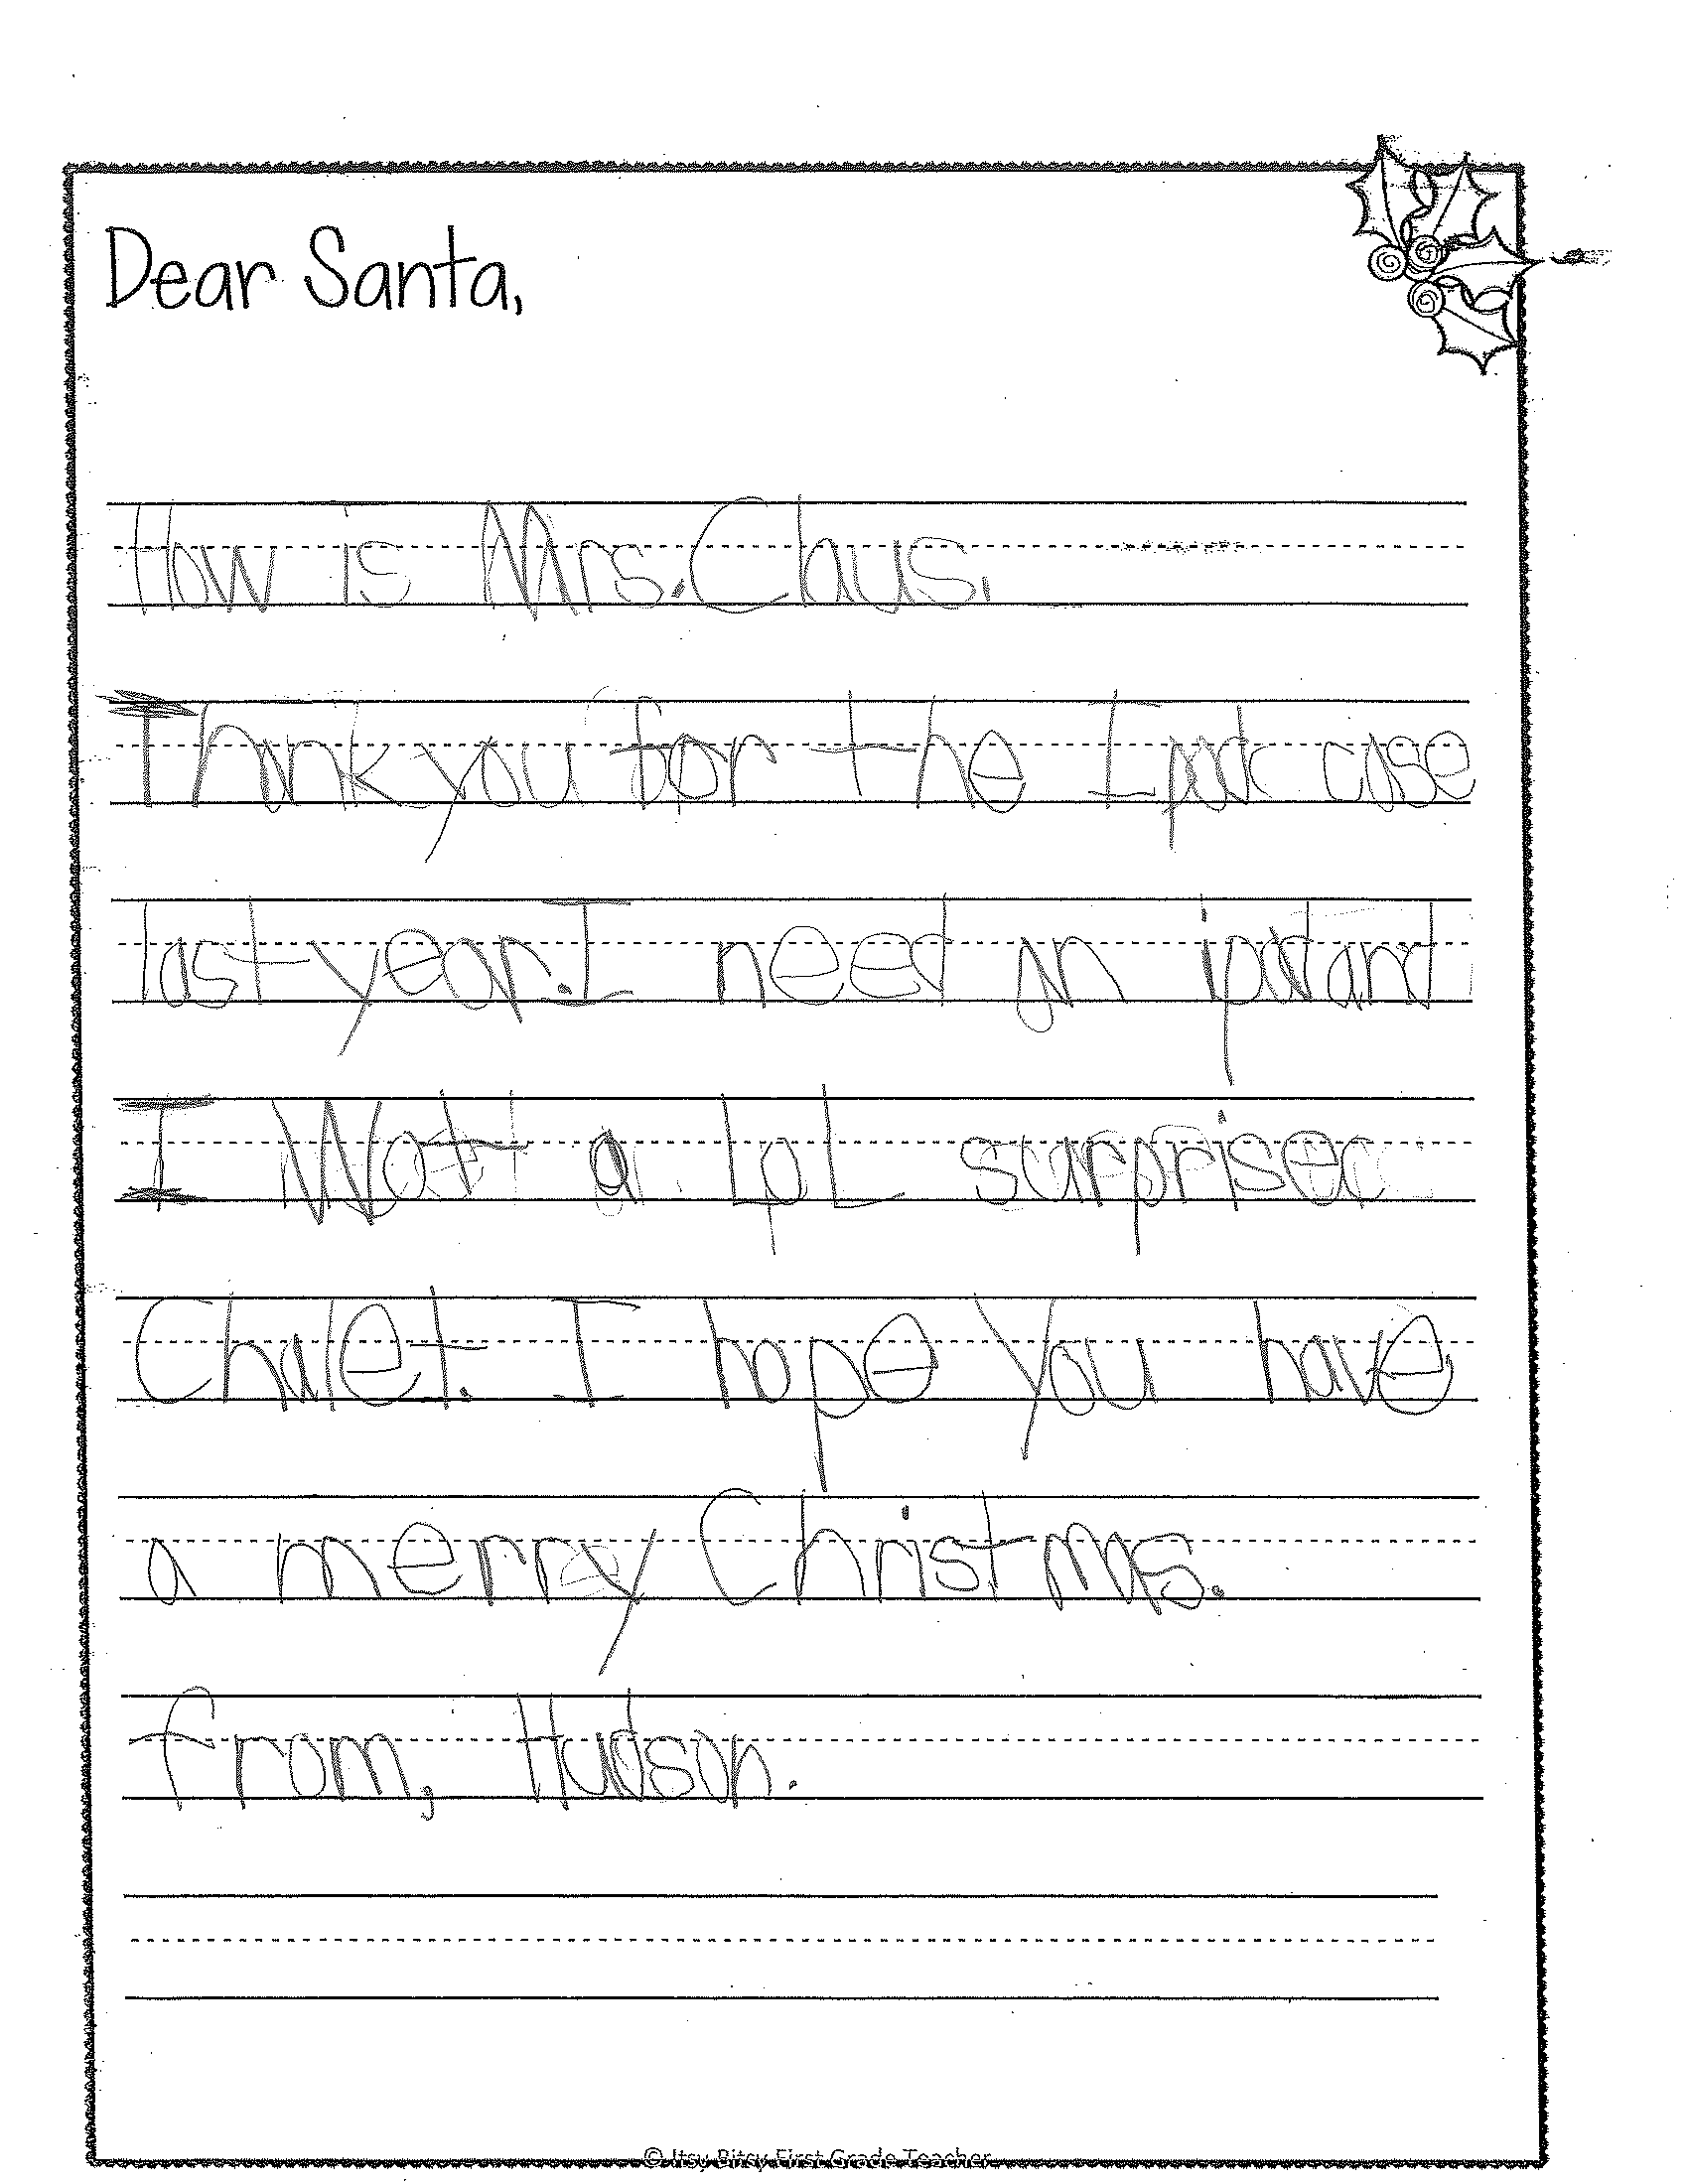 Dear Santa,
How is Mrs. Claus.
Thank you for the Ipad case
last year. I need an ipad and
I Wat a LoL surprise
Chalet. I hope you have
a merry Christmas.
from, Hudson.
© Itsy Bitsy First Grade Teacher